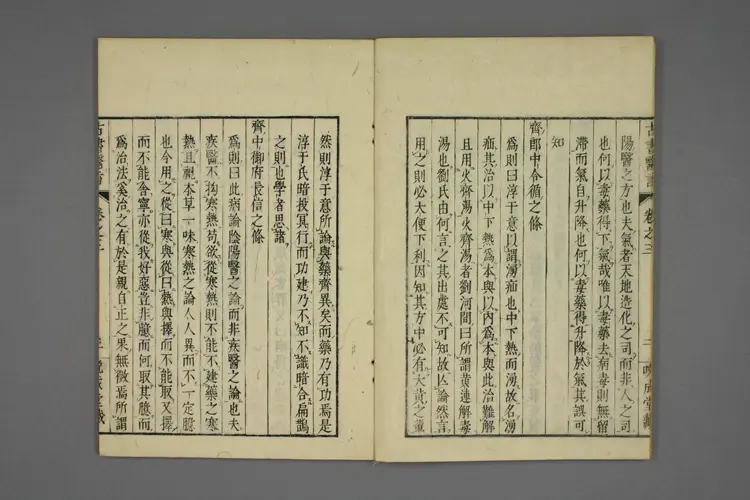 陽醫之方也夫氣者天地造化之司而非人之司
也何以毒藥得下氣哉唯以毒藥去病毒則無留
滯而氣自升降也何以毒藥得升降於氣其誤可
知
齊郎中令循之條
爲則曰淳于意以謂湧疝也中下熱而湧故名湧
疝其治以中下熱爲本與以內爲本與此治難解
且用火齊湯火齊湯者劉河間曰所謂黃連解毒
湯也劉氏由何言之其出處不可知故止論然言
用之則必大便下利因知其方中必有大黃之藥
然則淳于意所論與藥齊異矣而藥乃有功焉是
淳于氏暗投冥行而功建乃不知不識暗合扁鵲
之則也學者思諸
齊中御府長信之條
爲則曰此病論陰陽醫之論而非疾醫之論也夫
疾醫不拘寒熱苟欲從寒熱則不能不建藥之寒
熱且視本草一味寒熱之論人人異而不一定臆
也今用之從曰寒與從曰熱與擇而不能取又擇
而不能舍寧亦從我好惡豈非臆而何取其臆而
爲治法奚治之有於是親自正之果無徵焉所謂
古書醫言
卷之三